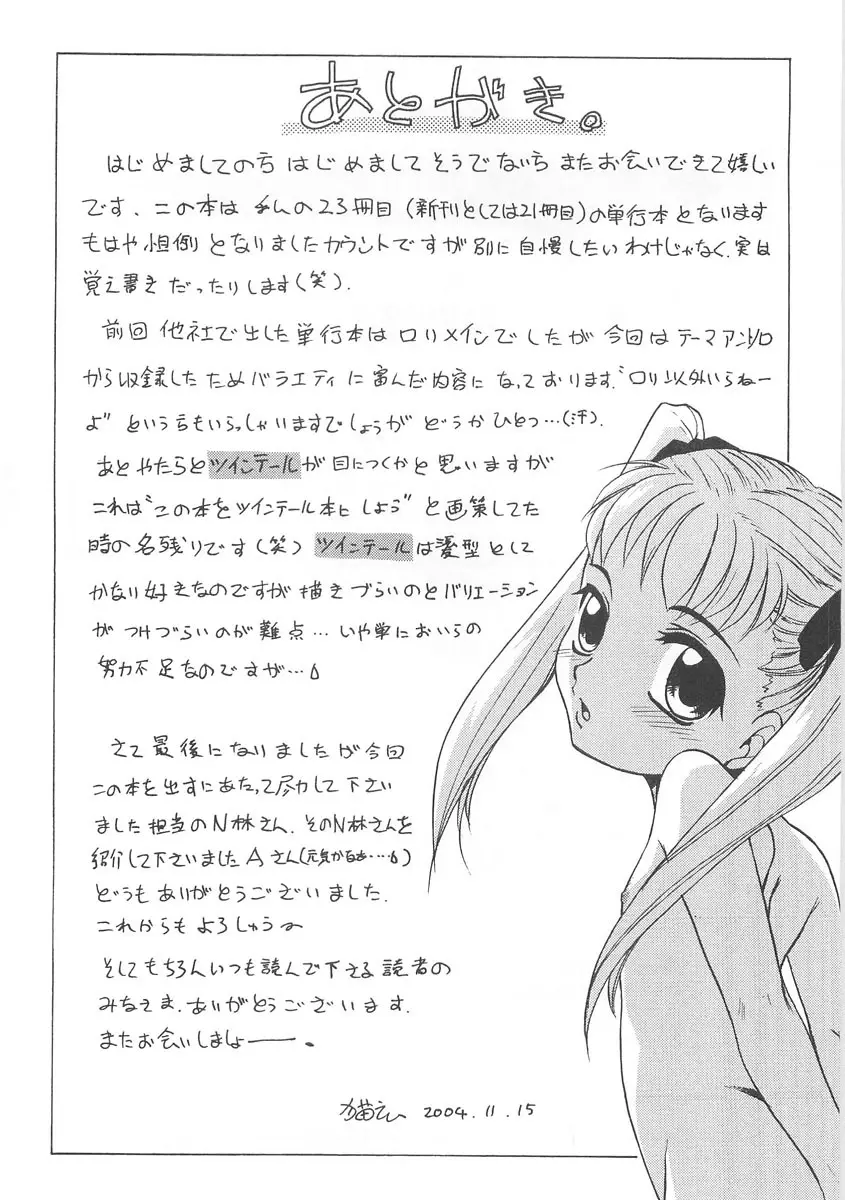 あとがき。
はじめましての方 はじめまして そうでない方 またお会いできて嬉しい
です。この本は 私の23冊目(新刊としては21冊目)の単行本となります
もはや 恒例 となりましたカウントですが 別に 自慢したいわけじゃなく、実は
覚え書き だったりします(笑).
前回 他社で出した単行本は ロリメインでしたが 今回は テーマアンソロ
から収録したためバラエティに富んだ内容に なっております。"ロリ以外いらねー
よ" という方もいらっしゃいますでしょうが どうかひとつ…(汗).
あと やたらと ツインテールが目につくかと思いますが
これは"この本をツインテール本に しよう"と画策してた
時の名残りです(笑) ツインテールは髪型として
かなり好きなのですが 描きづらいのとバリエーション
がつけづらいのが難点… いや単においらの
努力不足なのですが…
さて 最後になりましたが今回
この本を出すにあたって尽力して下さい
ました担当のN林さん、そのN林さんを
紹介して下さいました Aさん(元気かなぁ…)
どうもありがとうございました.
これからも よろしゅう〜
そしてもちろんいつも読んで下さる読者の
みなさま、ありがとうございます.
またお会いしましょ——。
2004.11.15